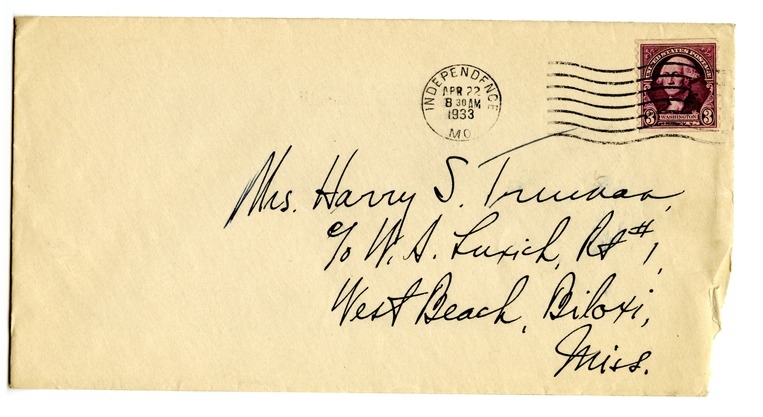 INDEPENDENCE
APR 22
8 30 AM
1933
MO.
UNITED STATES POSTAGE
3 WASHINGTON 3
Mrs. Harry S. Truman,
c/o W. A. Luxich, Rt #1,
West Beach, Biloxi,
Miss.